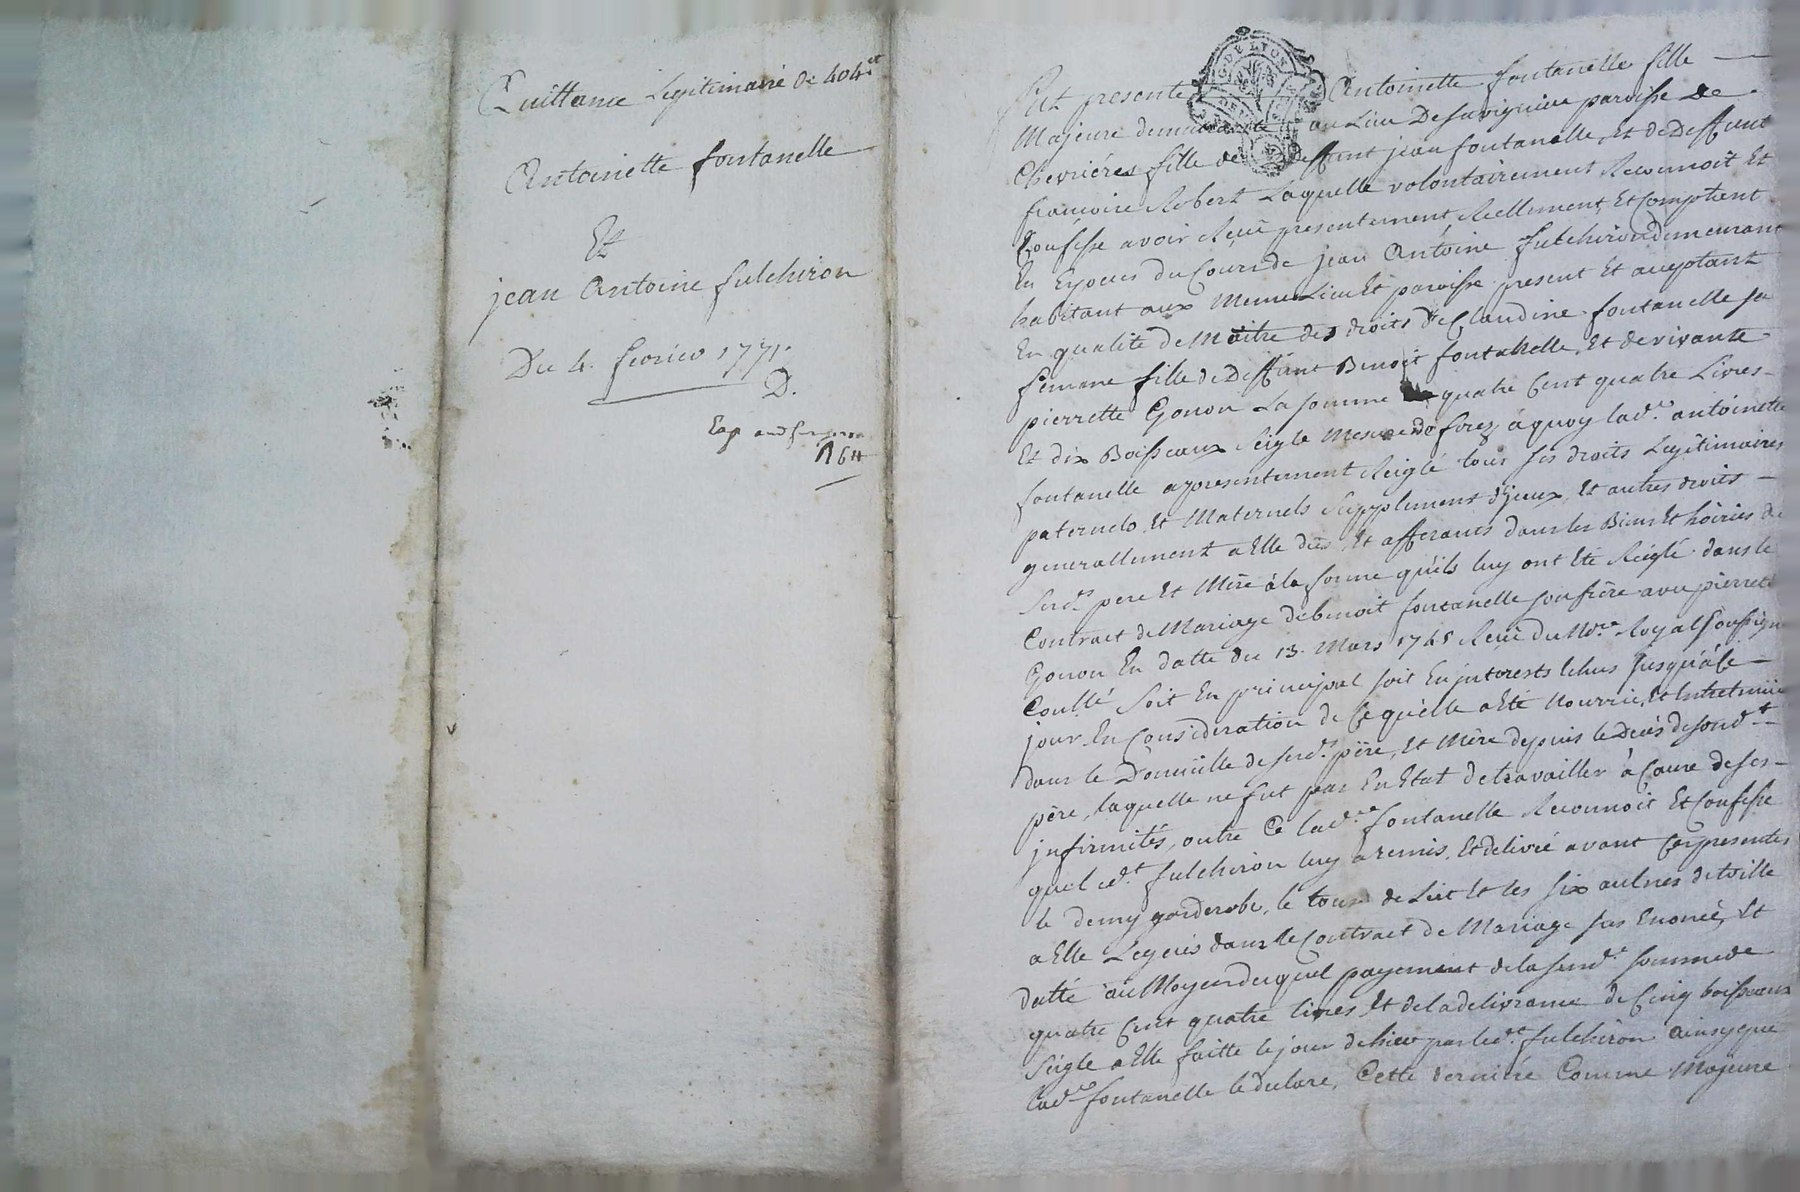 Quittance Legitimaire de 404ᵗᵗ
Antoinette fontanelle
Et
jean Antoine fulchiron
Du 4. fevrier 1771.
D.
Exp
G. DE LYON
Fut presente Antoinette fontanelle fille
Majeure demeurante au Lieu De Savignieu paroisse de
Chevriéres fille de deffunt jean fontanelle, et de Deffunt
françoise Robert Laquelle volontairement Reconnoit Et
Confesse avoir Reçu presentement Reellement, Et Comptent
En Especes du Cours de jean Antoine fulchiron demeurant
habitant aux Meme Lieu Et paroisse present Et aceptant
En qualité de Maitre des droits de Claudine fontanelle sa
femme fille de Deffunt Benoit fontanelle, Et de vivante
pierrette Gonon La somme de quatre Cent quatre Livres
Et dix Boisseaux seigle Mesure de forez, à quoy lad.ᵉ antoinette
fontanelle a presentement Reiglé tous ses droits Legitimaires
paternels, Et Maternels Supplement d'yceux, Et autres droits
generallement a Elle dus, Et afferants dans les Biens Et hoiries de
sesd.ˢ pere Et Mère à la forme qu'ils luy ont Eté Reiglé dans le
Contract de Mariage de benoit fontanelle son frère avec pierrette
Gonon En datte du 13. Mars 1745 Reçu du No.ʳᵉ Royal soussigné
Soit En principal soit En jnterests Echus jusqu'à ce
jour, En Consideration de Ce qu'elle a Eté Nourrie, Et Entretenüe
dans le Domicille de sesd.ˢ père, Et Mère depuis le Décès de sond.ᵗ
père, laquelle ne fut pas En Etat de travailler à Cause de ses
jnfirmités, outre Ce lad.ᵉ fontanelle Reconnoit Et Confesse
que led.ᵗ fulchiron luy a remis, Et delivré avant Ces presentes
le demy garderobe, le tour de Lict Et les six aulnes de toille
a Elle Legués dans le Contract de Mariage sus Enoncé, Et
datté au Moyen duquel payement de la susd.ᵉ somme de
quatre Cent quatre livres, Et de la delivrance de Cinq boisseaux
Seigle a Elle faitte le jour de hier par led.ᵗ fulchiron ainsy que
lad.ᵉ fontanelle le declare, Cette derniere Comme Majeure